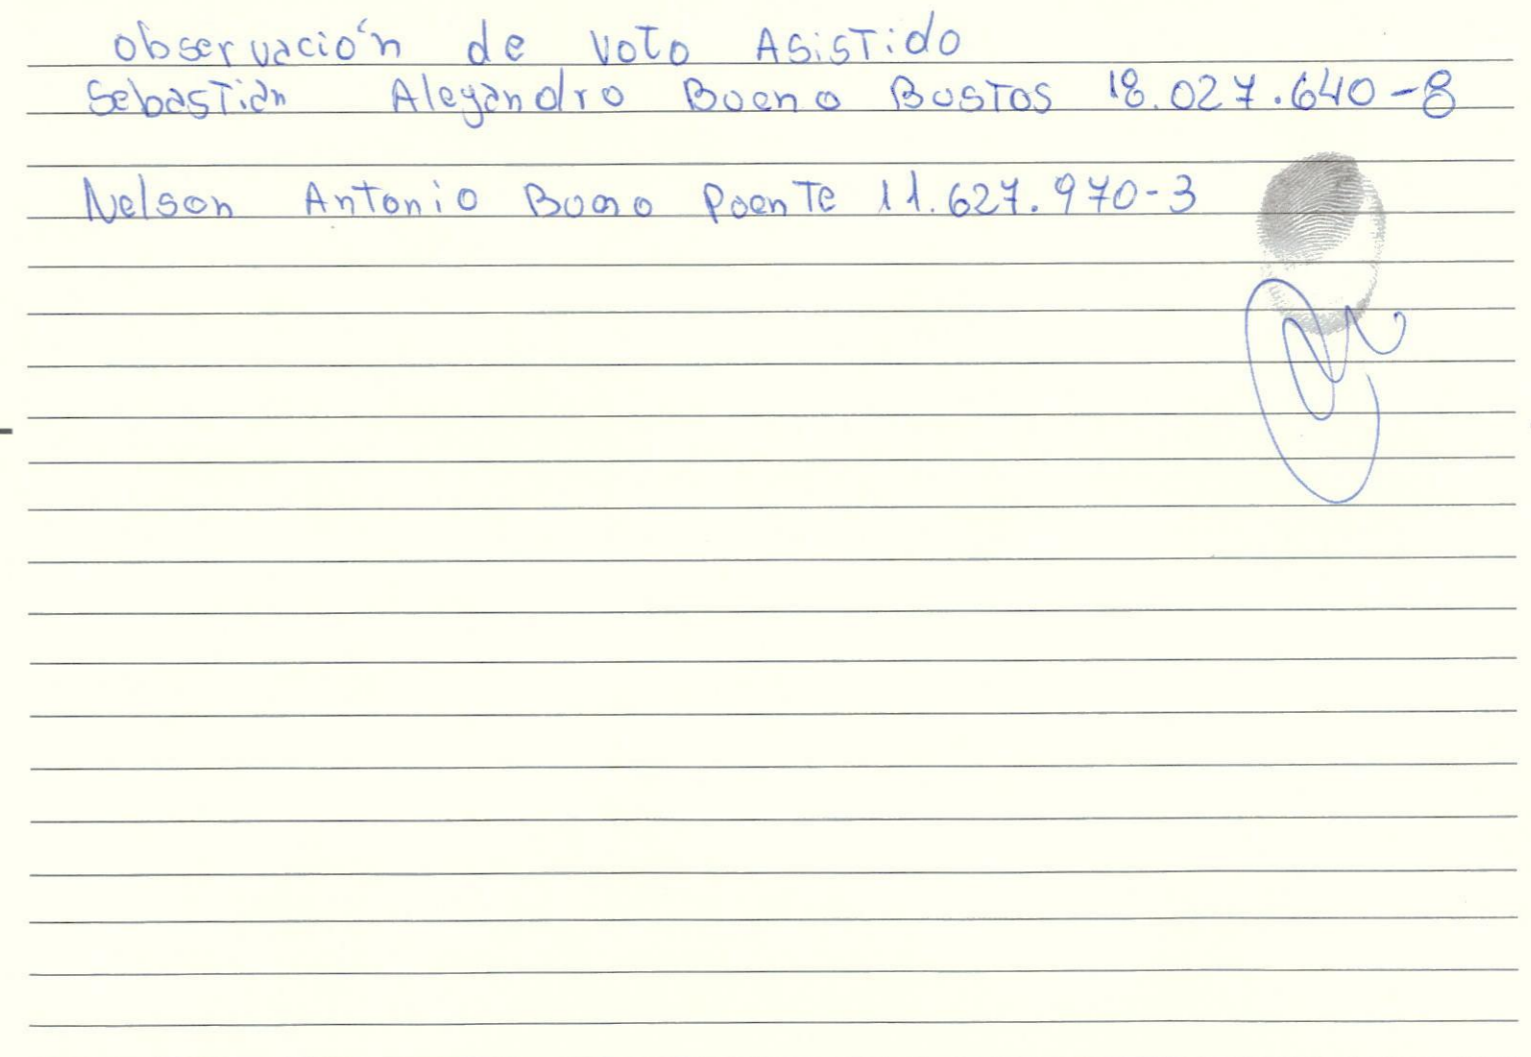 observación de voto Asistido
Sebastián Alejandro Bueno Bustos 18.027.640-8
Nelson Antonio Bueno Poente 11.627.970-3